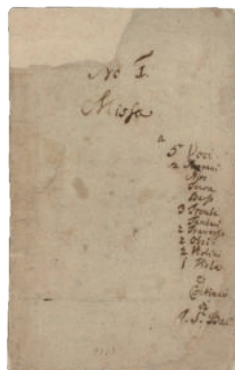 No I.
Missa
a
5 Voci
2 Soprani
Alto
Tenore
Basso
3 Trombe
Tamburi
2 Travers.
2 Oboi
2 Violini
1 Viola
e
Continuo
di
J. S. Bach